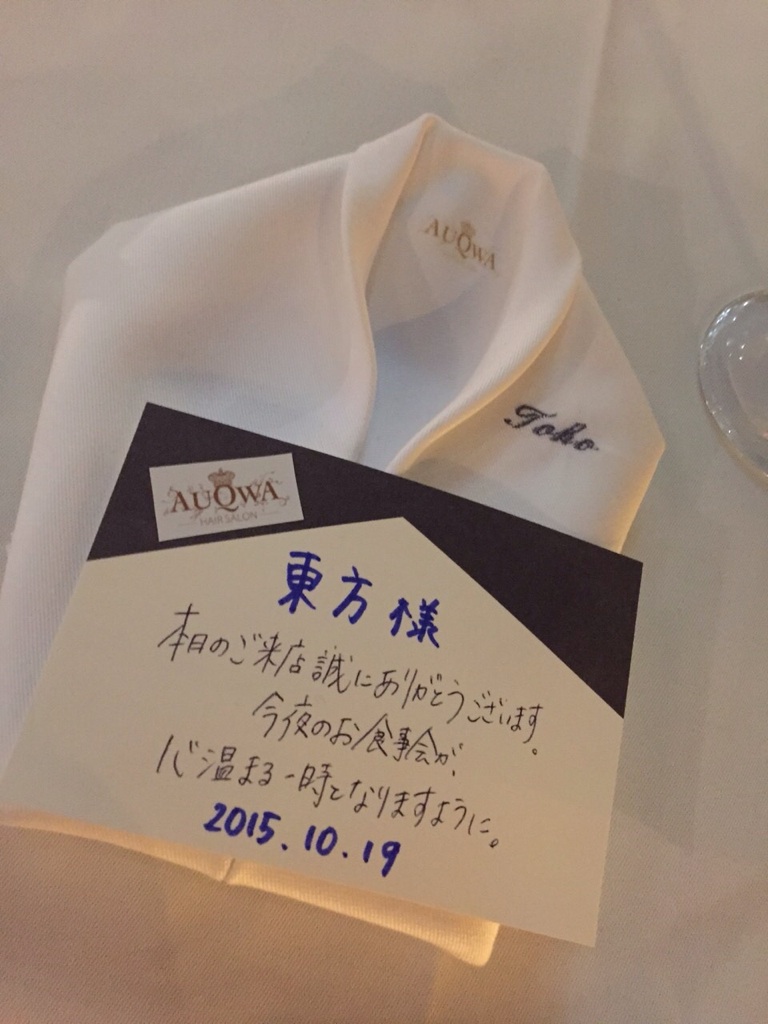 AUQWA
Toho
AUQWA
HAIR SALON
東方様
本日のご来店誠にありがとうございます。
今夜のお食事会が、
心温まる一時となりますように。
2015.10.19